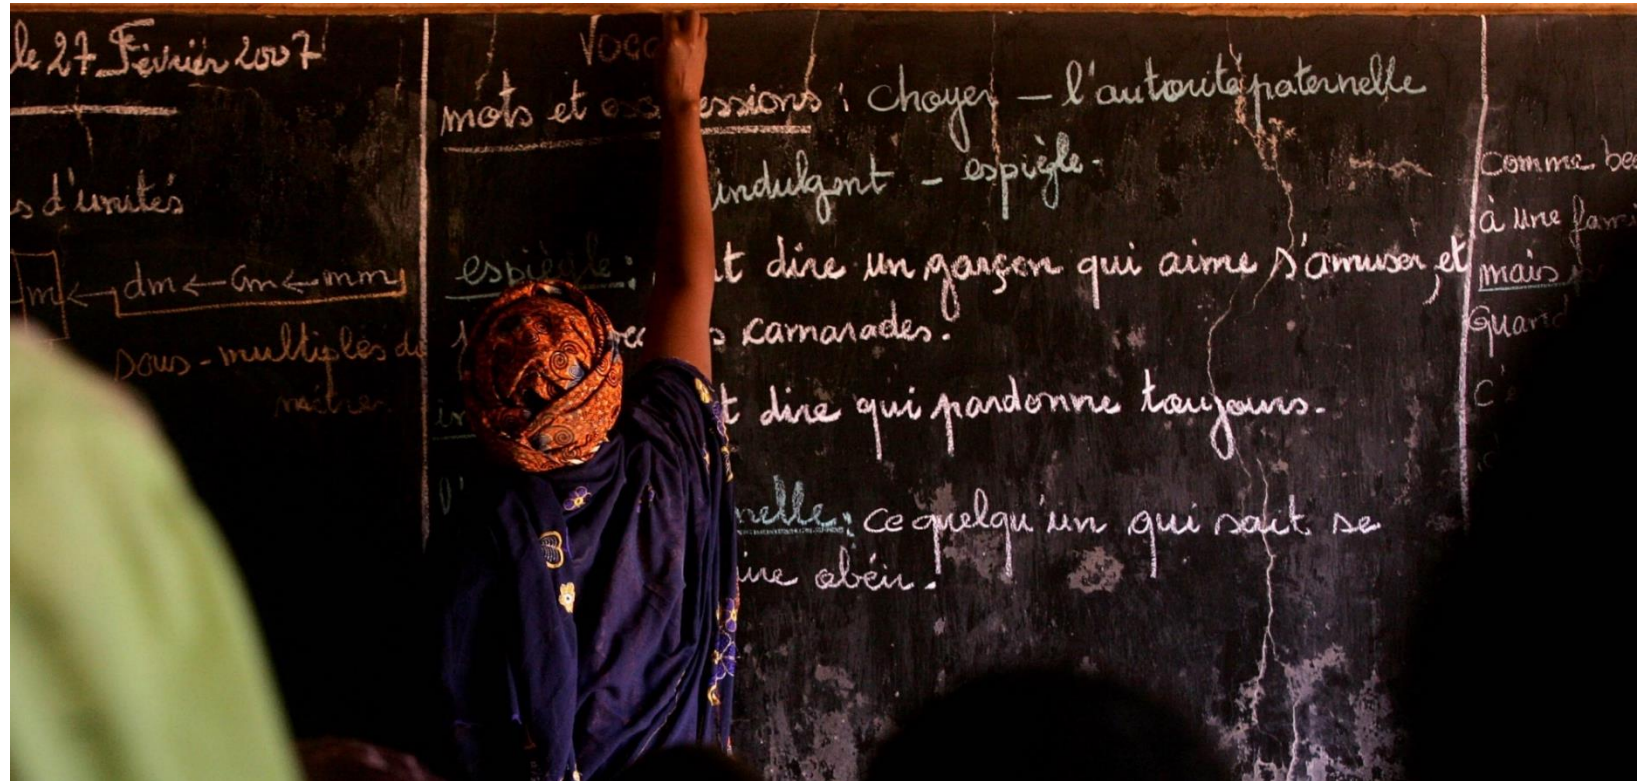 le 27 Février 2007
s d'unités
m ← dm ← cm ← mm
sous-multiples du
mètre
Voca
mots et essions : choyer – l'autorité paternelle
indulgent – espiègle.
espiègle : t dire un garçon qui aime s'amuser, et
camarades.
t dire qui pardonne toujours.
l' nelle : ce quelqu'un qui sait se
ire obéir.
comme bea
à une fami
mais
Quand